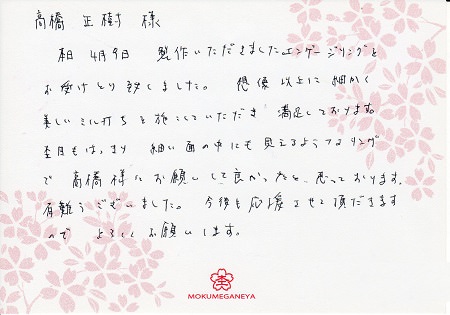 高橋 正樹 様
本日 4月9日 製作いただきましたエンゲージリングを
お受けとり致しました。 想像以上に細かく
美しいミル打ちを施こしていただき 満足しております。
杢目もはっきり 細い面の中にも見えるようなリング
で 高橋様にお願いして良かったと 思っております。
有難うございました。 今後も応援させて頂だきます
ので よろしくお願いします。
MOKUMEGANEYA